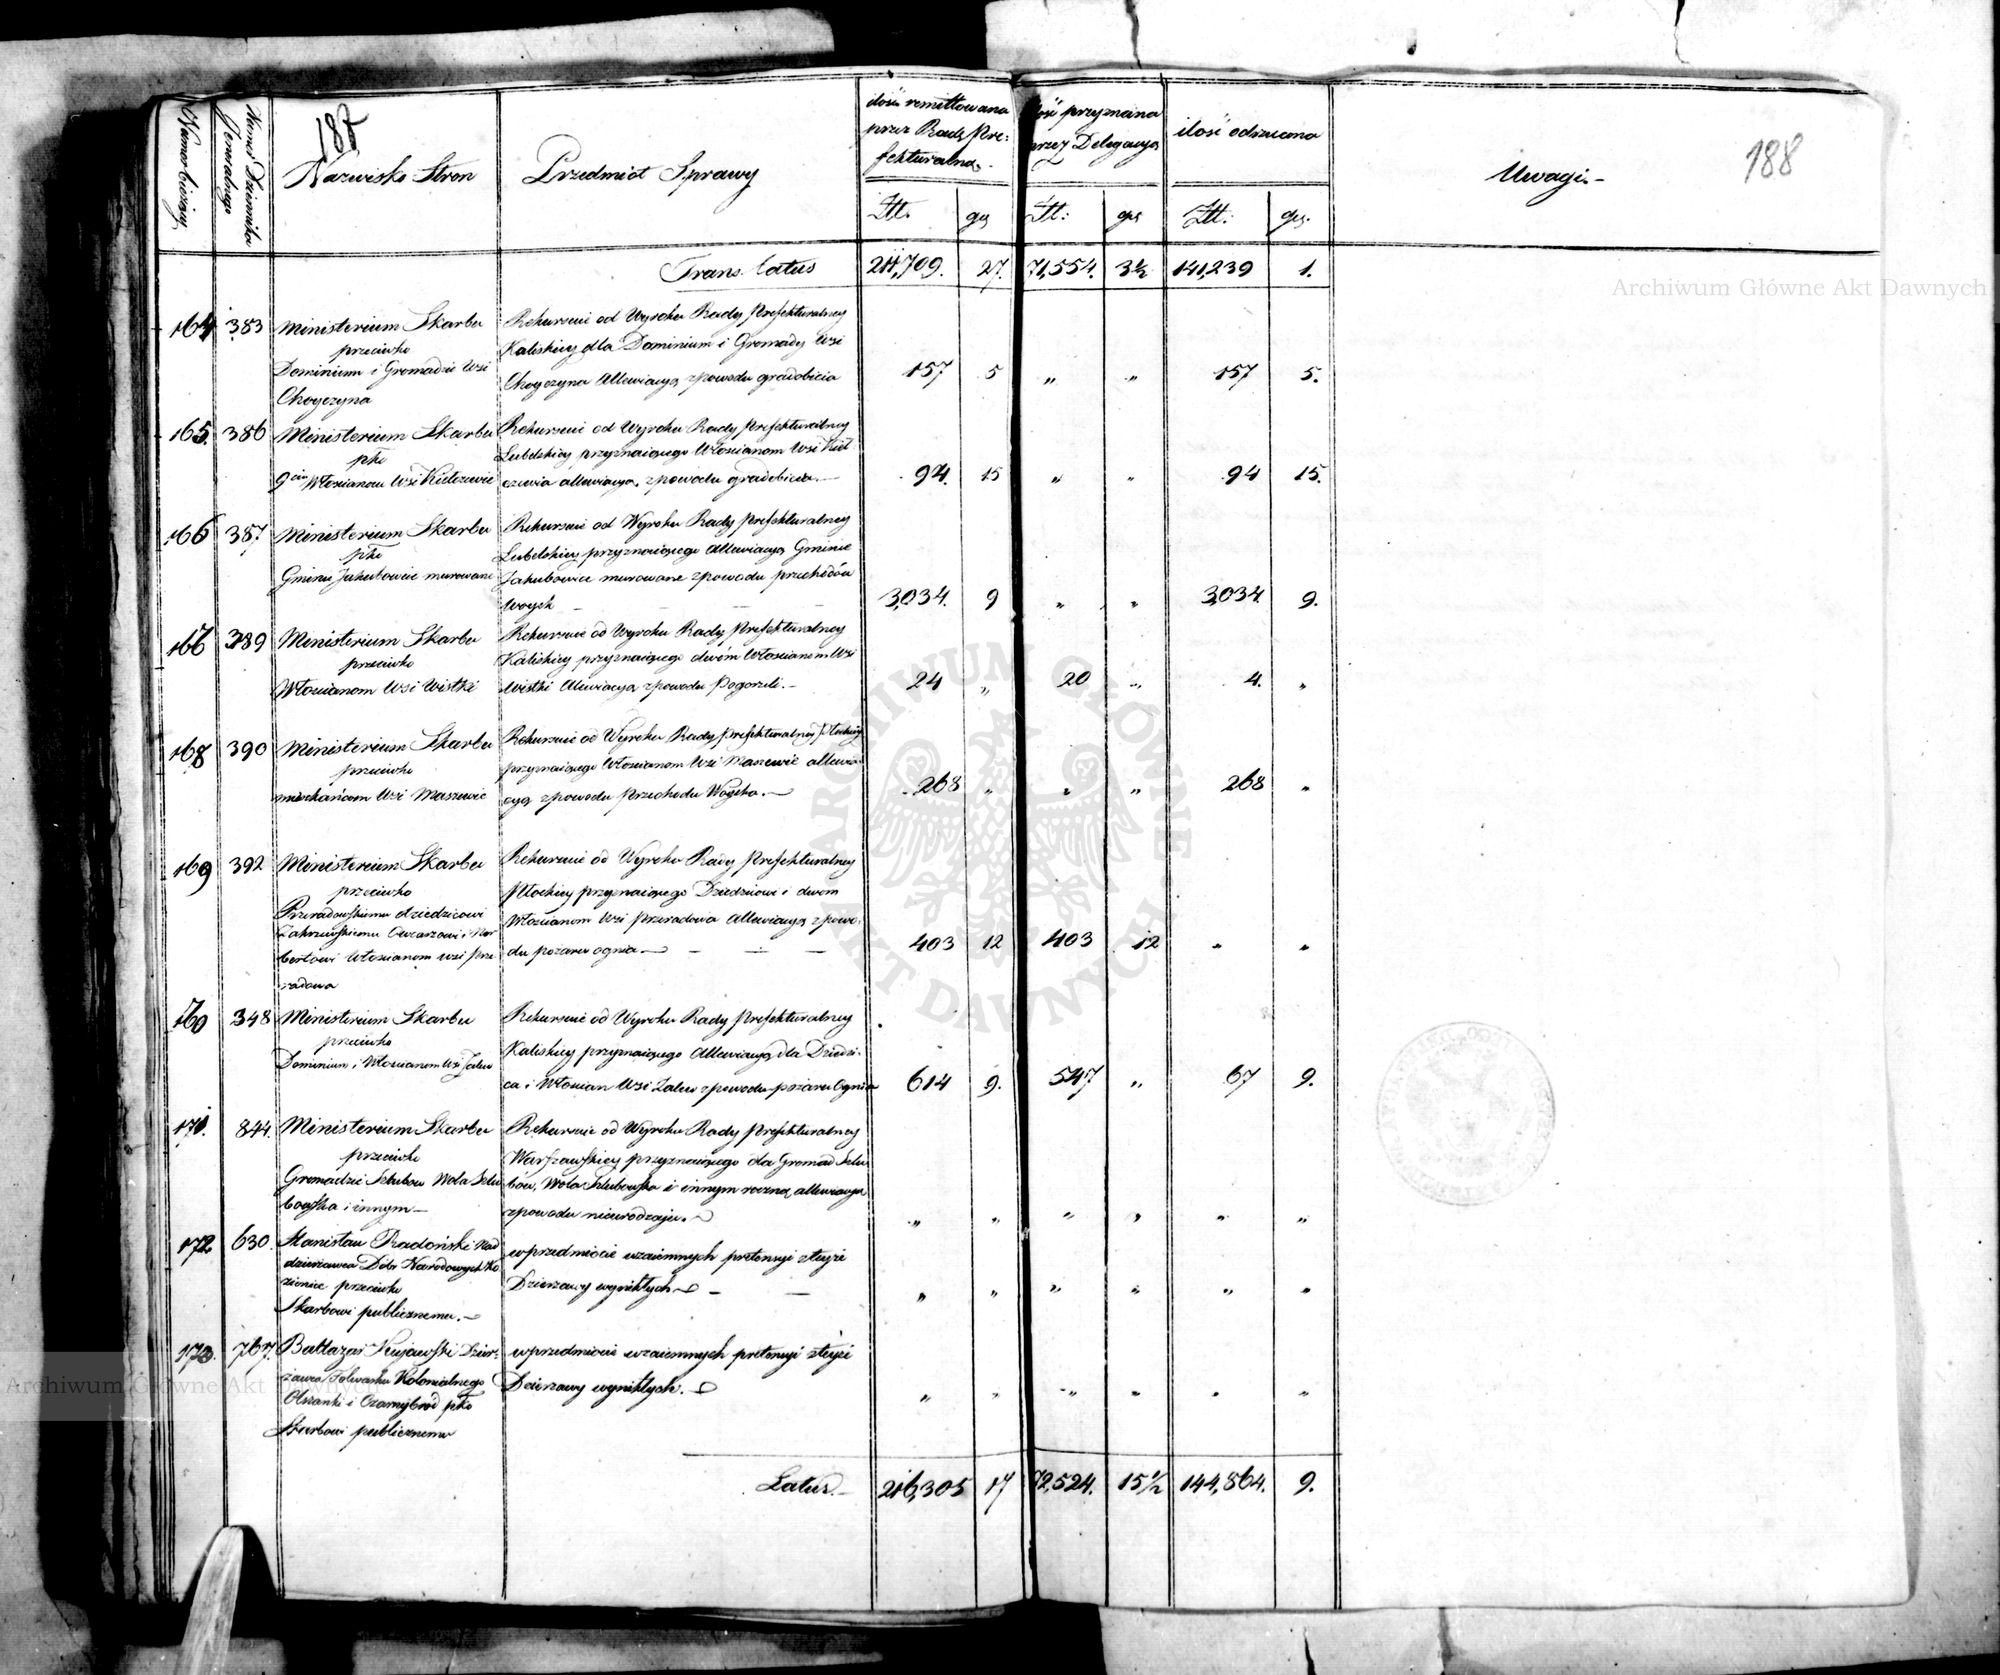 Numer bieżący
Numer Dziennika Jeneralnego
187
Nazwisko Stron
Przedmiot Sprawy
ilość remittowana
przez Radę Pre:
fekturalną.
ilość przyznana
przez Delegacyą
ilość odrzucona
Uwagi.
188
Ztt. gr Ztt: gr Ztt: gr.
Trans latus 211,709. 27. 71,554. 3½ 141,239 1.
Archiwum Główne Akt Dawnych
164 383 Ministerium Skarbu
przeciwko
Dominium i Gromadzie Wsi
Choyczyna
Rekursuie od Wyroku Rady Prefekturalney
Kaliskiey dla Dominium i Gromady Wsi
Choyczyna Allewiacyą zpowodu gradobicia
157 5 „ „ 157 5.
165. 386 Ministerium Skarbu
pko
9ciu Włościanom Wsi
Rekursuie od Wyroku Rady Prefekturalney
Lubelskiey przyznaiącego Włościanom Wsi
allewiacyą zpowodu gradobicia.
94. 15 „ „ 94 15.
166 387 Ministerium Skarbu
pko
Gminie Jakubowice murowane
Rekursuie od Wyroku Rady Prefekturalney
Lubelskiey przyznaiącego Allewiacyą Gminie
Jakubowice murowane zpowodu przechodów
Woysk
3,034. 9 „ „ 3,034. 9.
167 389 Ministerium Skarbu
przeciwko
Włościanom Wsi Wistki
Rekursuie od Wyroku Rady Prefekturalney
Kaliskiey przyznaiącego dwóm Włościanom Wsi
Wistki Alewiacyą zpowodu Pogorzeli.
24 „ 20 „ 4. „
168 390 Ministerium Skarbu
przeciwko
mieszkańcom Wsi Maszewic
Rekursuie od Wyroku Rady Prefekturalney Płockiey
przyznaiącego Włościanom Wsi Maszewic allewia
cyą zpowodu Przechodu Woyska.
268 „ „ „ 268 „
169 392 Ministerium Skarbu
przeciwko
Przeradowskiemu dziedzicowi
Zakrzewskiemu Owczarzowi i Nor
bertowi Włościanom wsi Prze
radowa
Rekursuie od Wyroku Rady Prefekturalney
Płockiey przyznaiącego Dziedzicowi i dwom
Włościanom Wsi Przeradowa Allewiacyą zpowo:
du pożaru ognia
403 12 403 12 „ „
170 348 Ministerium Skarbu
przeciwko
Dominium i Włościanom Wsi Zalew
Rekursuie od Wyroku Rady Prefekturalney
Kaliskiey przyznaiącego Allewiacyą dla Dziedzi-
ca i Włościan Wsi Zalew zpowodu pożaru Ognia
614 9. 547 „ 67 9.
171. 844. Ministerium Skarbu
przeciwko
Gromadzie Szlubow Wola Szlu
bowska i innym
Rekursuie od Wyroku Rady Prefekturalney
Warszawskiey przyznaiącego dla Gromad Szlu
bów, Wola Szlubowska i innym roczną allewiacyą
zpowodu nieurodzaju.
„ „ „ „ „ „
172. 630. Stanisław Radoński Nad
dzierżawca Dóbr Narodowych Ko
zienice przeciwko
Skarbowi publicznemu.
wprzedmiocie wzaiemnych pretensyi zteyże
Dzierżawy wynikłych
„ „ „ „ „ „
173. 767. Baltazar Kujawski Dzier:
żawca Folwarku Kolonialnego
Olszanki i Czarnybród pko
Skarbowi publicznemu
wprzedmiocie wzaiemnych pretensyi zteyże
Dzierżawy wynikłych.
„ „ „ „ „ „
Archiwum Główne Akt Dawnych
Latus. 216,305 17 72,524. 15½ 144,864. 9.
ARCHIWUM GŁÓWNE AKT DAWNYCH